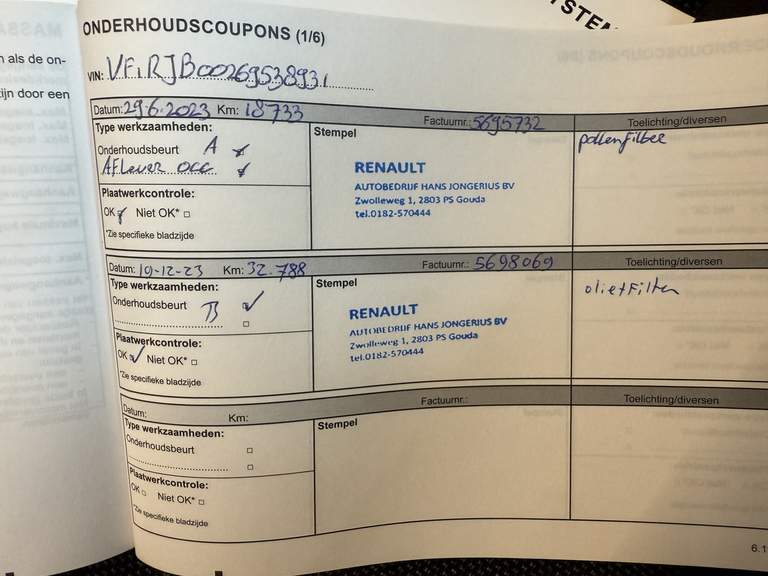 YSTEM
n als de on-
ijn door een
ONDERHOUDSCOUPONS (1/6)
VIN: VF1RJB00269538931
Datum: 29.6.2023 Km: 18733 Factuurnr.: 5695732 Toelichting/diversen
Type werkzaamheden:
Stempel
pollenfilter
Onderhoudsbeurt A
AFlever occ.
RENAULT
AUTOBEDRIJF HANS JONGERIUS BV
Zwolleweg 1, 2803 PS Gouda
tel.0182-570444
Plaatwerkcontrole:
OK Niet OK*
*Zie specifieke bladzijde
Datum: 19-12-23 Km: 32.788 Factuurnr.: 5698069 Toelichting/diversen
Type werkzaamheden:
Stempel
olie+Filter
Onderhoudsbeurt B
RENAULT
AUTOBEDRIJF HANS JONGERIUS BV
Zwolleweg 1, 2803 PS Gouda
tel.0182-570444
Plaatwerkcontrole:
OK Niet OK*
*Zie specifieke bladzijde
Datum: Km: Factuurnr.: Toelichting/diversen
Type werkzaamheden:
Stempel
Onderhoudsbeurt
Plaatwerkcontrole:
OK Niet OK*
*Zie specifieke bladzijde
6.1